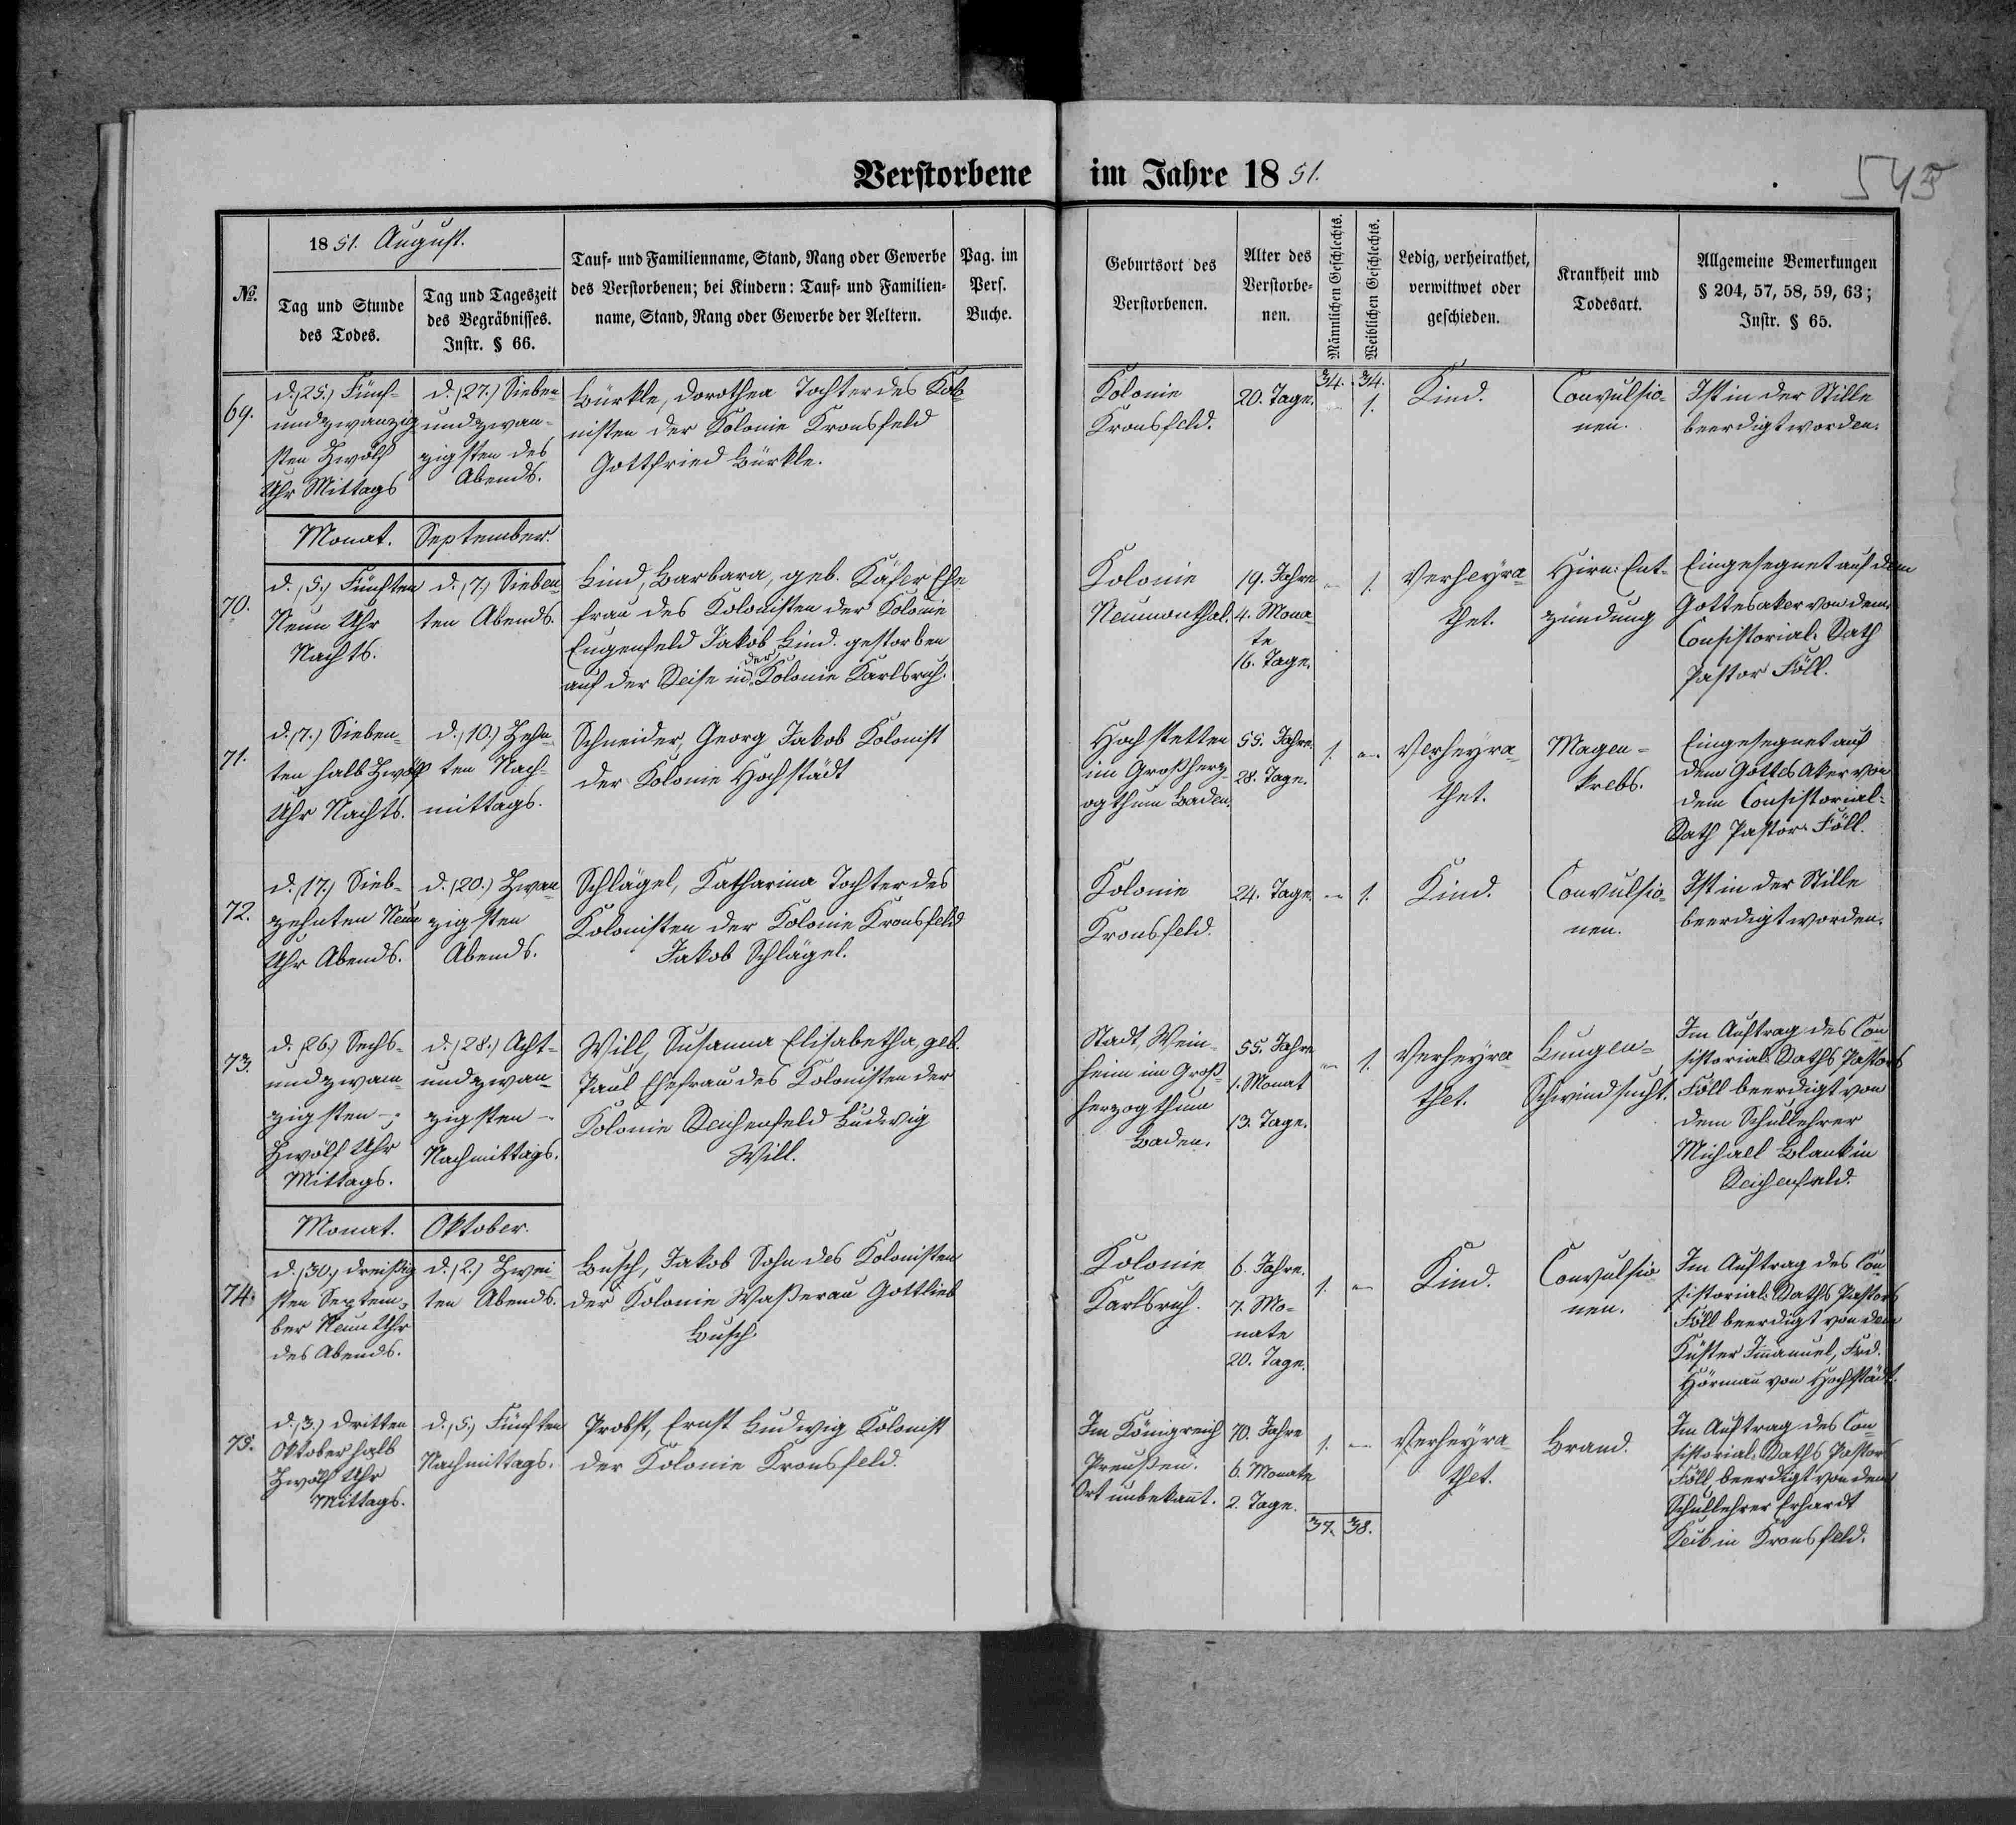 Verstorbene im Jahre 1851.
545
№.
1851. August.
Tag und Stunde
des Todes.
Tag und Tageszeit
des Begräbnisses.
Instr. § 66.
Tauf- und Familienname, Stand, Rang oder Gewerbe
des Verstorbenen; bei Kindern: Tauf- und Familien-
name, Stand, Rang oder Gewerbe der Aeltern.
Pag. im
Pers.
Buche.
Geburtsort des
Verstorbenen.
Alter des
Verstorbe-
nen.
Männlichen Geschlechts.
Weiblichen Geschlechts.
Ledig, verheirathet,
verwittwet oder
geschieden.
Krankheit und
Todesart.
Allgemeine Bemerkungen
§ 204, 57, 58, 59, 63;
Instr. § 65.
69.
d. (25.) Fünf-
undzwanzig
sten Zwölf
Uhr Mittags
d. (27.) Sieben-
undzwan-
zigsten des
Abends.
Bürkle, Dorothea Tochter des Kolo-
nisten der Kolonie Kronsfeld
Gottfried Bürkle.
Kolonie
Kronsfeld.
20. Tage.
34. 34.
1.
Kind.
Convulsio-
nen.
Ist in der Stille
beerdigt worden.
Monat. September.
70.
d. (5.) Fünften
Neun Uhr
Nachts.
d. (7.) Sieben-
ten Abends.
Lind, Barbara, geb. Käfer Ehe
frau des Kolonisten der Kolonie
Eugenfeld Jakob Lind. gestorben
auf der Reise in der Kolonie Karlsruh.
Kolonie
Neumonthal.
19. Jahre
4. Mona-
te
16. Tage.
1.
Verheyra-
thet.
Hirn: Ent-
zündung
Eingesegnet auf dem
Gottesaker von dem
Consistorial: Rath
Pastor Föll.
71.
d. (7.) Sieben-
ten halb Zwölf
Uhr Nachts.
d. (10.) Zehn-
ten Nach-
mittags.
Schneider, Georg Jakob Kolonist
der Kolonie Hochstädt
Hochstetten
im Großherz-
ogthum Baden.
55. Jahre
28. Tage.
1.
Verheyra-
thet.
Magen-
krebs.
Eingesegnet auf
dem Gottes Aker von
dem Consistorial-
Rath Pastor Föll.
72.
d. (17.) Sieb-
zehnten Neun
Uhr Abends.
d. (20.) Zwan-
zigsten
Abends.
Schlägel, Katharina Tochter des
Kolonisten der Kolonie Kronsfeld
Jakob Schlägel.
Kolonie
Kronsfeld.
24. Tage.
1.
Kind.
Convulsio-
nen.
Ist in der Stille
beerdigt worden.
73.
d. (26.) Sechs-
undzwan-
zigsten
Zwölf Uhr
Mittags.
d. (28.) Acht-
undzwan-
zigsten
Nachmittags.
Will, Susanna Elisabetha, geb.
Paul Ehefrau des Kolonisten der
Kolonie Reichenfeld Ludwig
Will.
Stadt, Wein-
heim im Groß-
herzogthum
Baden.
55. Jahre
1. Monat
13. Tage.
1.
Verheyra
thet.
Lungen-
Schwindsucht.
Im Auftrag des Con-
sistorial: Raths Pastors
Föll beerdigt von
dem Schullehrer
Michael Blank in
Reichenfeld.
Monat. Oktober.
74.
d. (30.) dreißig
sten Septem-
ber Neun Uhr
des Abends.
d. (2.) Zwei-
ten Abends.
Busch, Jakob Sohn des Kolonisten
der Kolonie Waßerau Gottlieb
Busch.
Kolonie
Karlsruh.
6. Jahre.
7. Mo-
nate
20. Tage.
1.
Kind.
Convulsio
nen.
Im Auftrag des Con-
sistorial: Raths Pastors
Föll beerdigt von dem
Küster Immanuel, Frd.
Hörmañ von Hochstädt.
75.
d. (3.) Dritten
Oktober halb
Zwölf Uhr
Mittags.
d. (5.) Fünften
Nachmittags.
Probst, Ernst Ludwig Kolonist
der Kolonie Kronsfeld.
Im Königreich
Preußen.
Ort unbekañt.
70. Jahre
6. Monate
2. Tage.
1.
Verheyra
thet.
Brand.
Im Auftrag des Con-
sistorial: Raths Pastors
Föll, beerdigt von dem
Schullehrer Erhardt
in Kronsfeld.
37. 38.